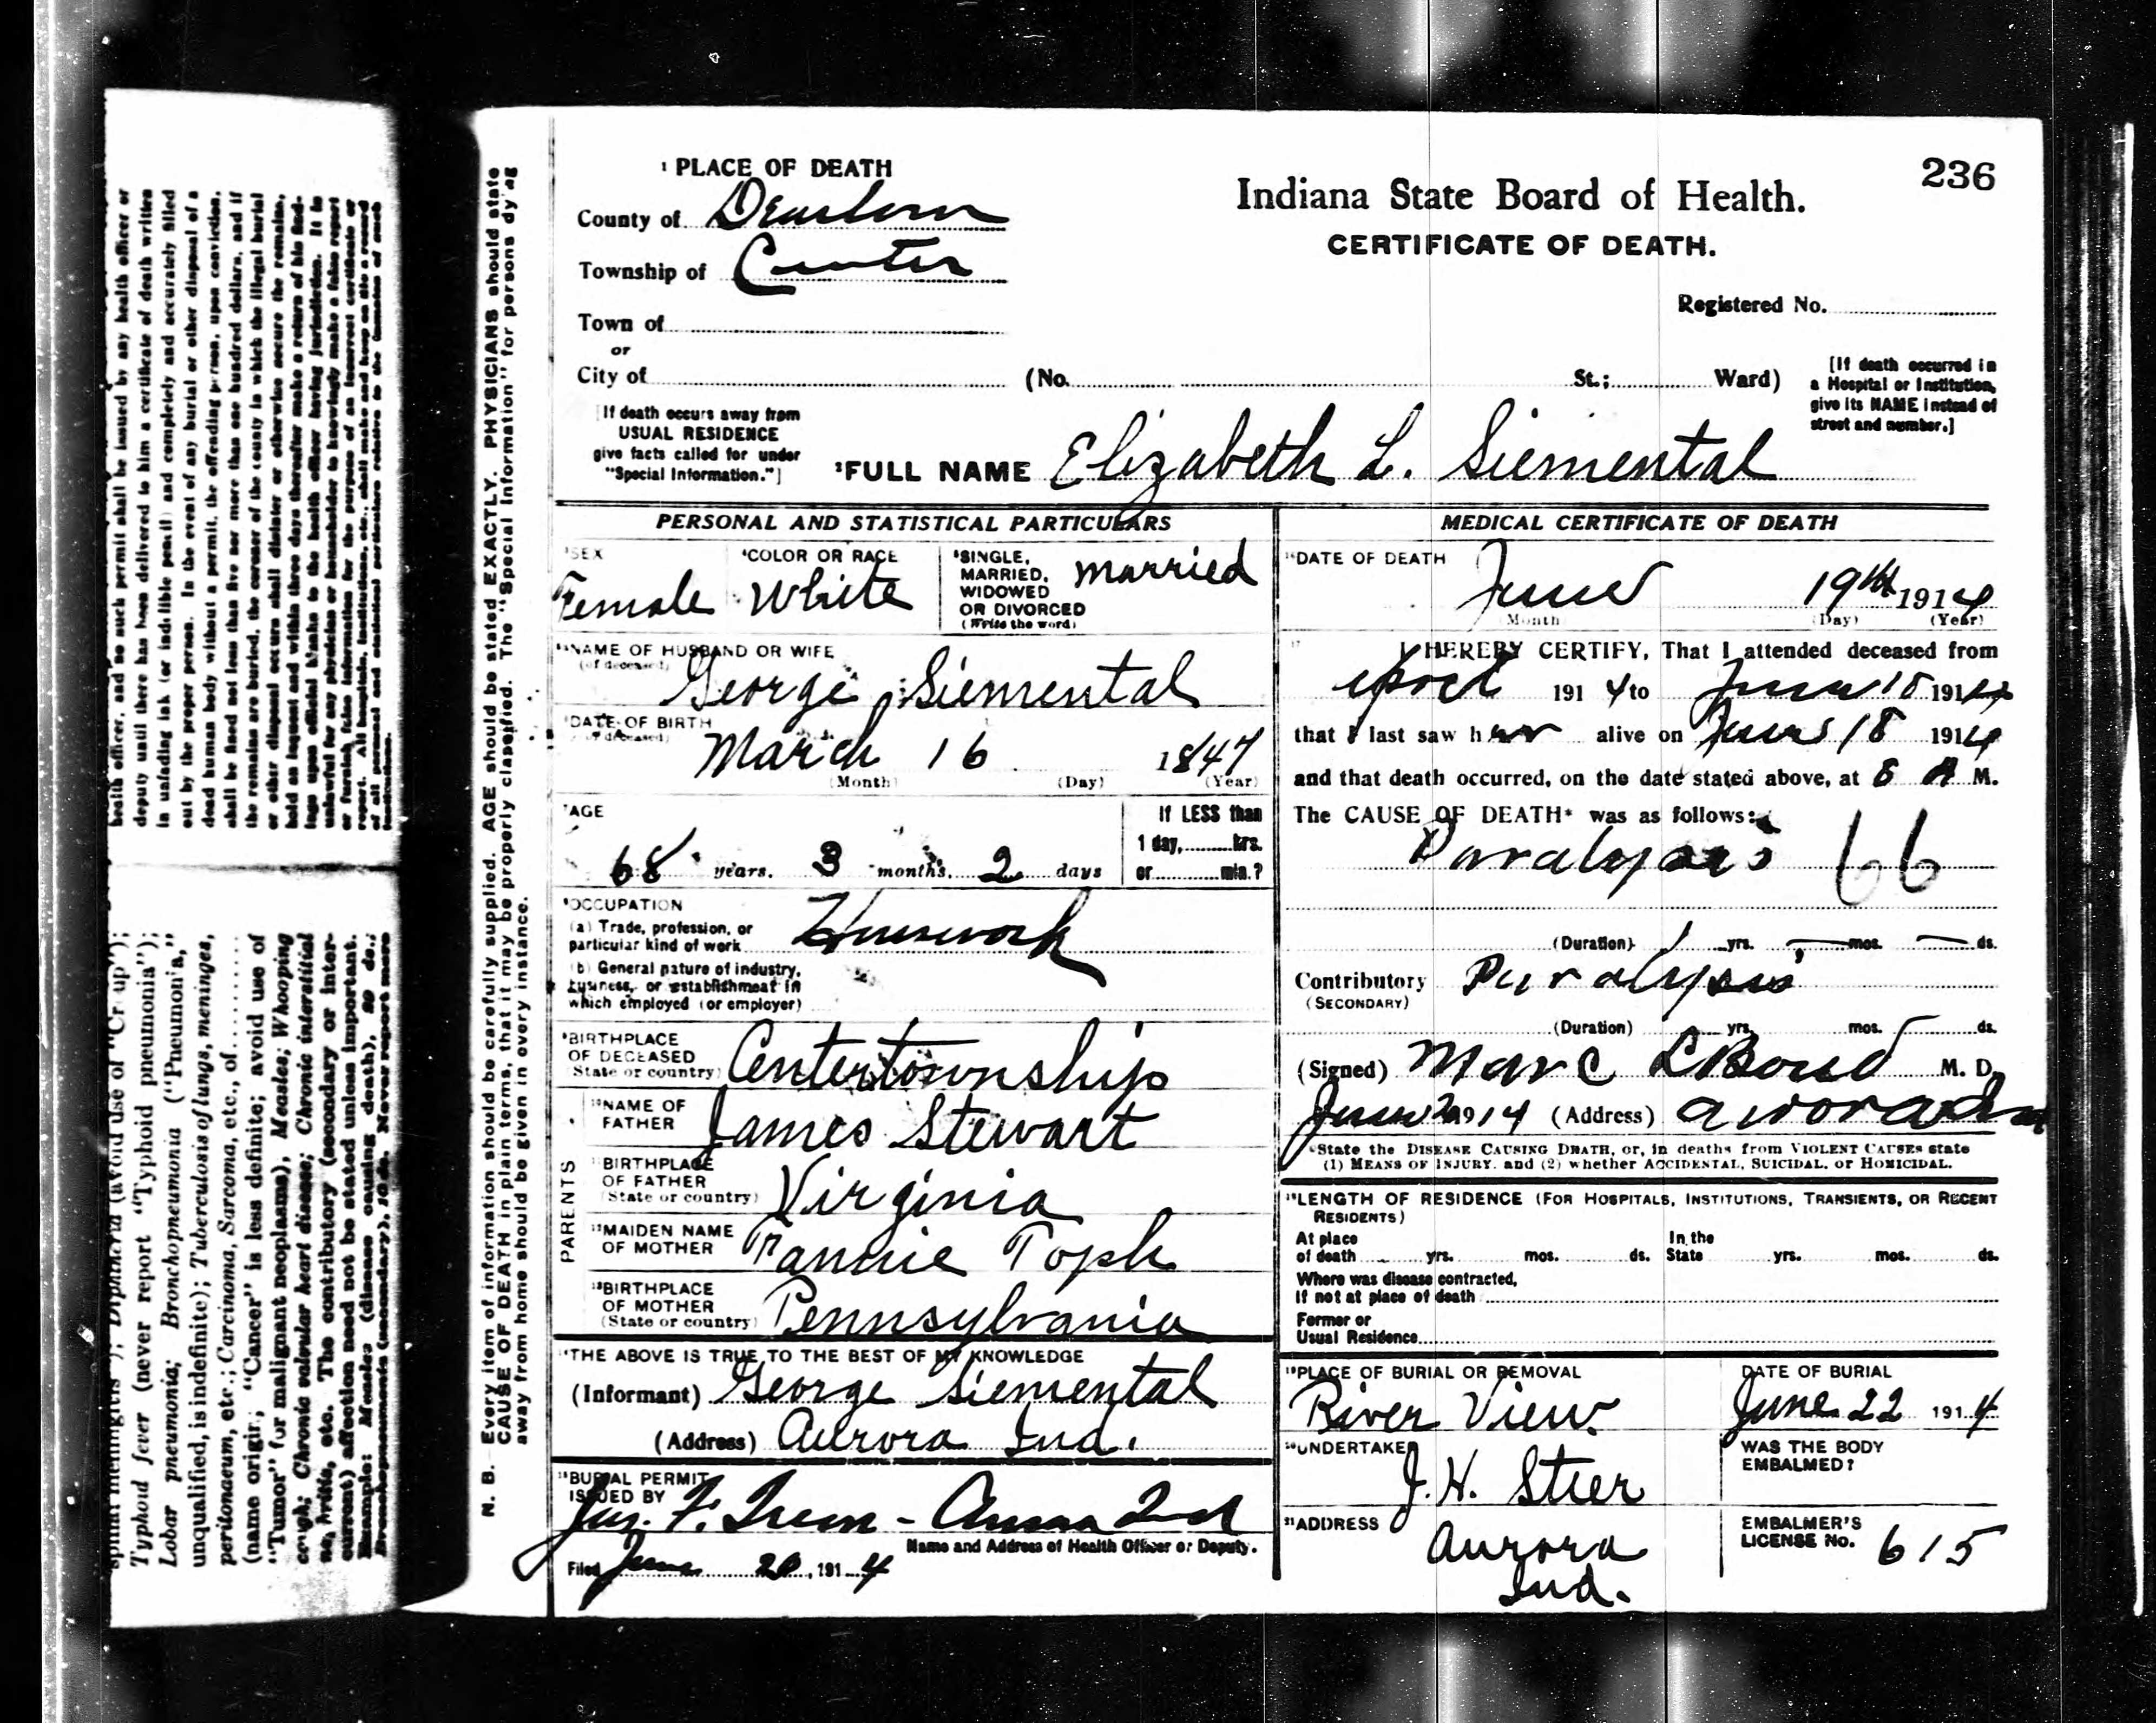 236
¹ PLACE OF DEATH
County of Dearborn
Township of Center
Town of
or
City of (No. St.; Ward)
Indiana State Board of Health.
CERTIFICATE OF DEATH.
Registered No.
[If death occurred in
a Hospital or Institution,
give its NAME instead of
street and number.]
[If death occurs away from
USUAL RESIDENCE
give facts called for under
"Special Information."]
²FULL NAME Elizabeth L. Siemental
PERSONAL AND STATISTICAL PARTICULARS
³SEX
Female
⁴COLOR OR RACE
White
⁵SINGLE,
MARRIED,
WIDOWED
OR DIVORCED
(Write the word)
married
NAME OF HUSBAND OR WIFE
(of deceased)
George Siemental
⁶DATE OF BIRTH
(of deceased)
March 16 1847
(Month) (Day) (Year)
⁷AGE
68 years, 3 months, 2 days
If LESS than
1 day, hrs.
or min.?
⁸OCCUPATION
(a) Trade, profession, or
particular kind of work Housework
(b) General nature of industry,
business, or establishment in
which employed (or employer)
⁹BIRTHPLACE
OF DECEASED
(State or country)
Centertownship
PARENTS
¹⁰NAME OF
FATHER
James Stewart
¹¹BIRTHPLACE
OF FATHER
(State or country)
Virginia
¹²MAIDEN NAME
OF MOTHER
Fannie Toph
¹³BIRTHPLACE
OF MOTHER
(State or country)
Pennsylvania
¹⁴THE ABOVE IS TRUE TO THE BEST OF MY KNOWLEDGE
(Informant) George Siemental
(Address) Aurora Ind.
¹⁵BURIAL PERMIT
ISSUED BY
Jas. F. - Ind
Name and Address of Health Officer or Deputy.
Filed June 20, 1914
MEDICAL CERTIFICATE OF DEATH
¹⁶DATE OF DEATH
June 19th 1914
(Month) (Day) (Year)
¹⁷ I HEREBY CERTIFY, That I attended deceased from
1914 to June 18 1914
that I last saw her alive on June 18 1914
and that death occurred, on the date stated above, at 8 A M.
The CAUSE OF DEATH* was as follows:
Paralysis 66
(Duration) 1 yrs. — mos. — ds.
Contributory Paralysis
(SECONDARY)
(Duration) yrs. mos. ds.
(Signed) Marc L Bond M. D.
June 20 1914 (Address) Aurora Ind
*State the DISEASE CAUSING DEATH, or, in deaths from VIOLENT CAUSES state
(1) MEANS OF INJURY. and (2) whether ACCIDENTAL, SUICIDAL, or HOMICIDAL.
¹⁸LENGTH OF RESIDENCE (FOR HOSPITALS, INSTITUTIONS, TRANSIENTS, OR RECENT
RESIDENTS)
At place
of death yrs. mos. ds.
In the
State yrs. mos. ds.
Where was disease contracted,
If not at place of death
Former or
Usual Residence
¹⁹PLACE OF BURIAL OR REMOVAL
River View
DATE OF BURIAL
June 22 1914
²⁰UNDERTAKER
J. H. Stier
WAS THE BODY
EMBALMED?
²¹ADDRESS
Aurora
Ind.
EMBALMER'S
LICENSE No. 615
N. B. Every item of information should be carefully supplied. AGE should be stated EXACTLY. PHYSICIANS should state
CAUSE OF DEATH in plain terms, that it may be properly classified. The "Special Information" for persons dying
away from home should be given in every instance.
health officer, and no such permit shall be issued by any health officer or
deputy until there has been delivered to him a certificate of death written
in unfading ink (or indelible pencil) and completely and accurately filled
out by the proper person. In the event of any burial or other disposal of a
dead human body without a permit, the offending person, upon conviction,
shall be fined not less than five nor more than one hundred dollars, and if
the remains are buried, the coroner of the county in which the illegal burial
or other disposal occurs shall disinter or otherwise secure the remains,
hold an inquest and within three days thereafter make a return of his find-
ings upon official blanks to the health officer having jurisdiction. It is
unlawful for any physician or householder to knowingly make a false report
or furnish false information for the purpose of an incorrect certificate or
report. All hospitals, institutions, etc., shall make and keep on file a record
of all personal and statistical particulars relative to the inmates of such
institutions.
spinal meningitis"); Diphtheria (avoid use of "Croup");
Typhoid fever (never report "Typhoid pneumonia");
Lobar pneumonia; Bronchopneumonia ("Pneumonia,"
unqualified, is indefinite); Tuberculosis of lungs, meninges,
peritonaeum, etc.; Carcinoma, Sarcoma, etc., of..........
(name origin; "Cancer" is less definite; avoid use of
"Tumor" for malignant neoplasms), Measles; Whooping
cough; Chronic valvular heart disease; Chronic interstitial
nephritis, etc. The contributory (secondary or inter-
current) affection need not be stated unless important.
Example: Measles (disease causing death), 29 ds.;
Bronchopneumonia (secondary), 10 ds. Never report mere